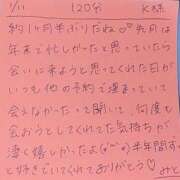 1/11 120分 K様
約1ヶ月半ぶりだね♡先月は
年末で忙しかったと思っていたら
会いに来ようと思ってくれた日が
いつも他の予約で埋まっていて
会えなかったって聞いて、何度も
会おうとしてくれた気持ちが
凄く嬉しかったよ(o^^o)半年間ずっ
と好きでいてくれてありがとう♡